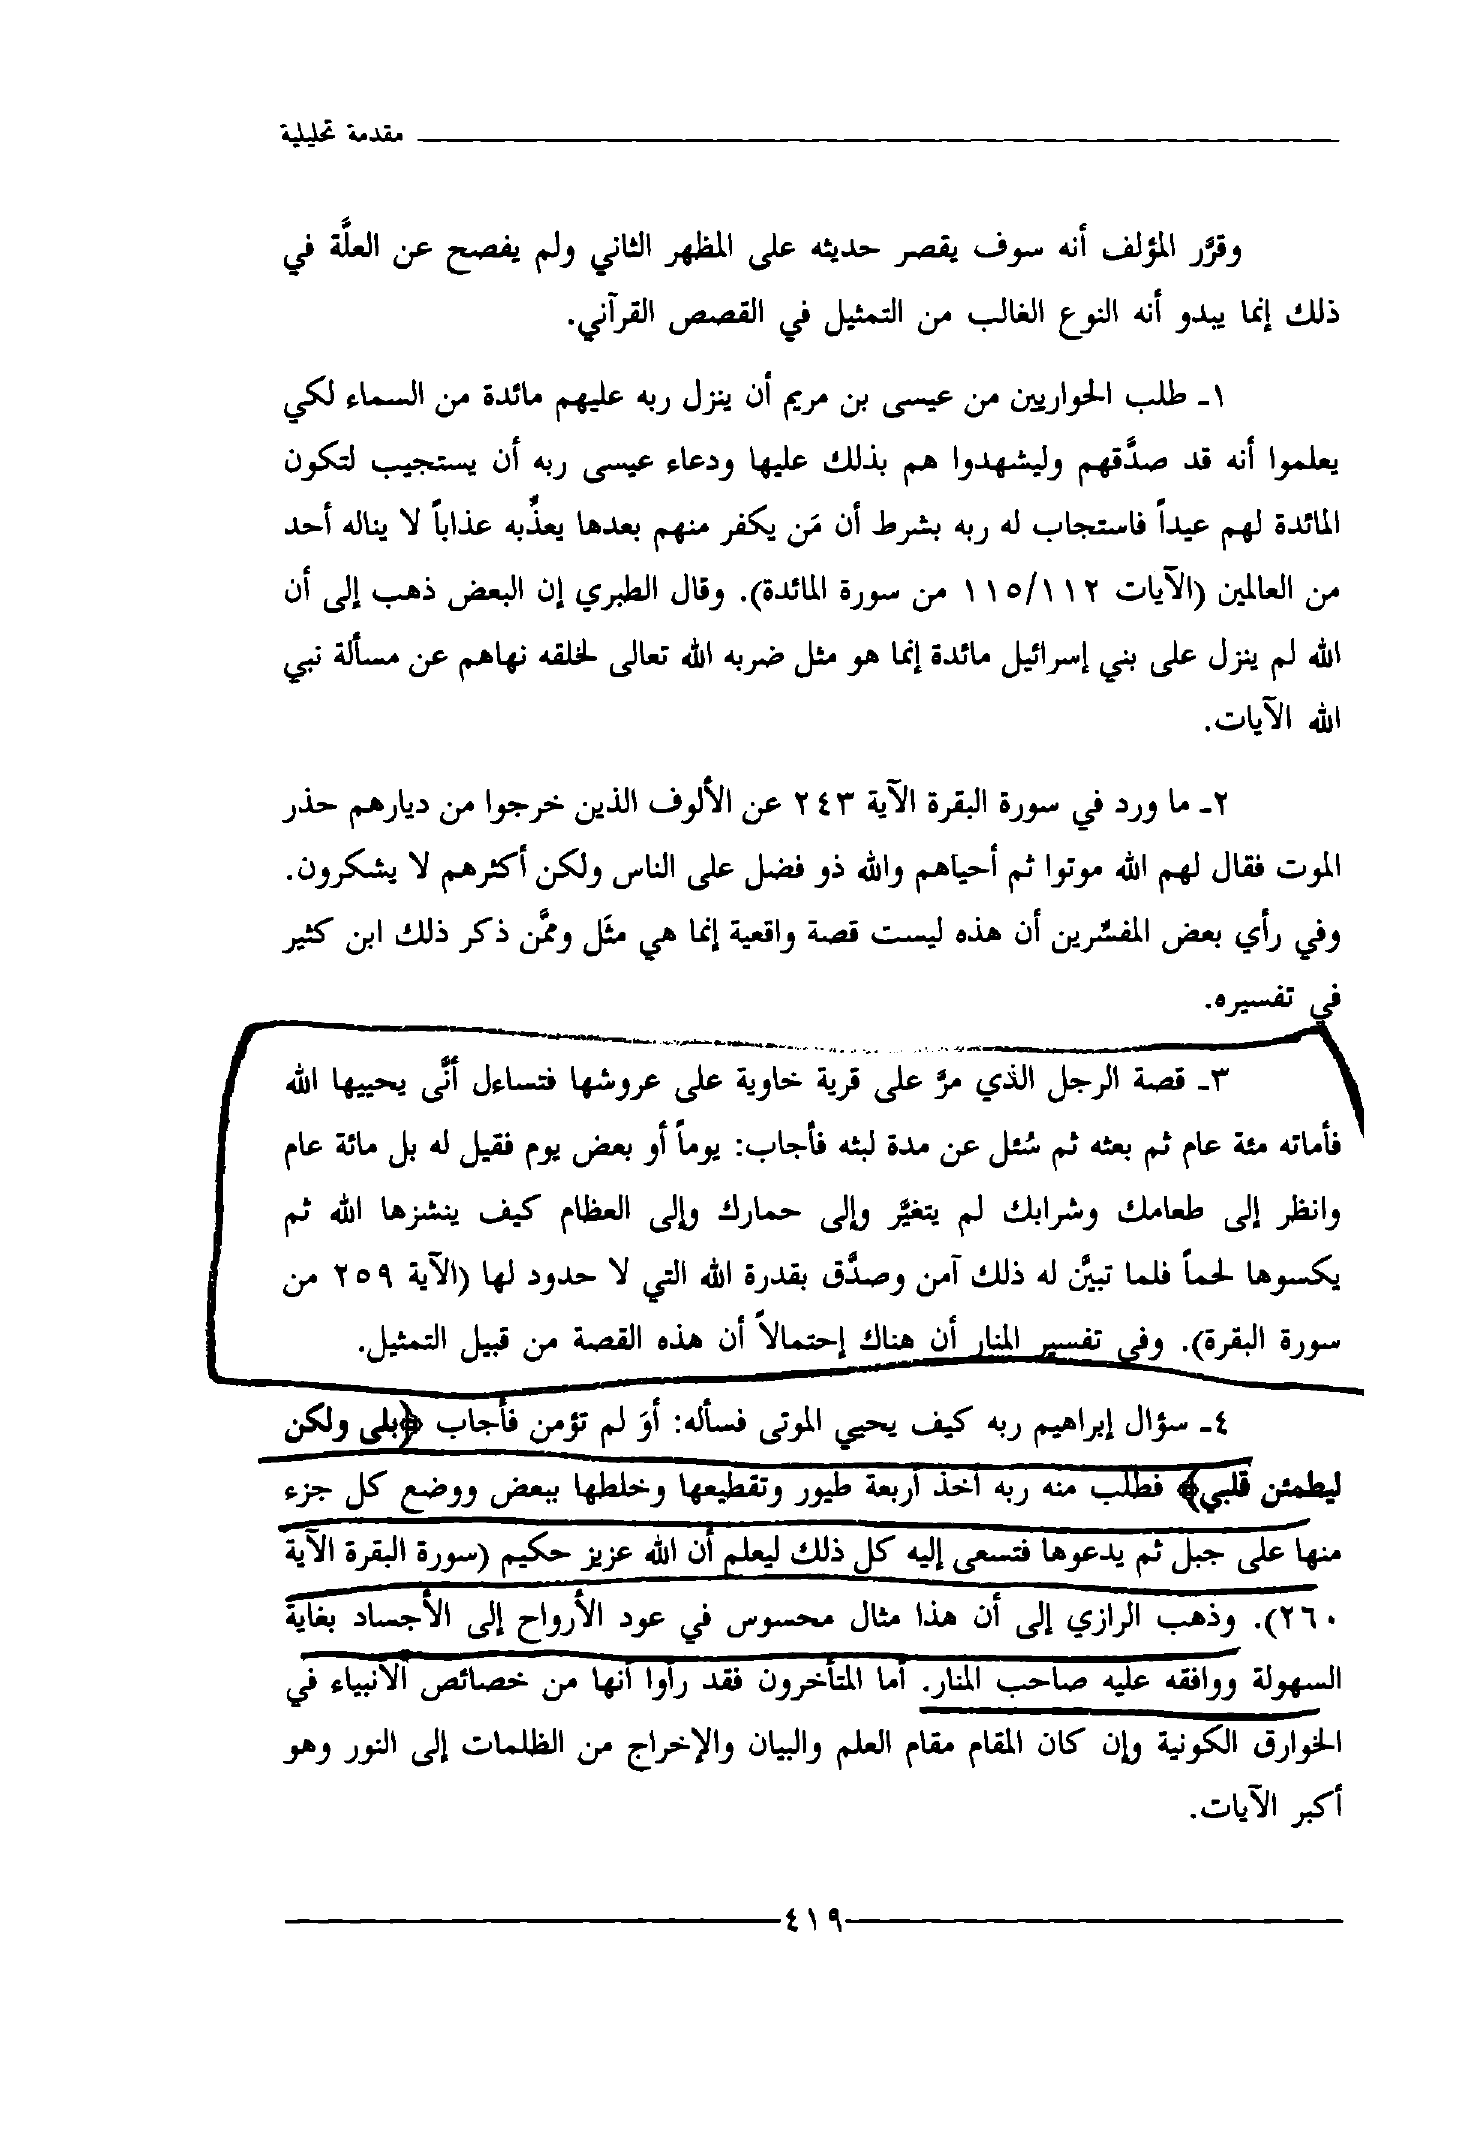 مقدمة تحليلية
وقرَّر المؤلف أنه سوف يقصر حديثه على المظهر الثاني ولم يفصح عن العلَّة في
ذلك إنما يبدو أنه النوع الغالب من التمثيل في القصص القرآني.
١ـ طلب الحواريين من عيسى بن مريم أن ينزل ربه عليهم مائدة من السماء لكي
يعلموا أنه قد صدَّقهم وليشهدوا هم بذلك عليها ودعاء عيسى ربه أن يستجيب لتكون
المائدة لهم عيداً فاستجاب له ربه بشرط أن مَن يكفر منهم بعدها يعذِّبه عذاباً لا يناله أحد
من العالمين (الآيات ١١٥/١١٢ من سورة المائدة). وقال الطبري إن البعض ذهب إلى أن
الله لم ينزل على بني إسرائيل مائدة إنما هو مثل ضربه الله تعالى لخلقه نهاهم عن مسألة نبي
الله الآيات.
٢ـ ما ورد في سورة البقرة الآية ٢٤٣ عن الألوف الذين خرجوا من ديارهم حذر
الموت فقال لهم الله موتوا ثم أحياهم والله ذو فضل على الناس ولكن أكثرهم لا يشكرون.
وفي رأي بعض المفسِّرين أن هذه ليست قصة واقعية إنما هي مثَل وممَّن ذكر ذلك ابن كثير
في تفسيره.
٣ـ قصة الرجل الذي مرَّ على قرية خاوية على عروشها فتساءل أنَّى يحييها الله
فأماته مئة عام ثم بعثه ثم سُئل عن مدة لبثه فأجاب: يوماً أو بعض يوم فقيل له بل مائة عام
وانظر إلى طعامك وشرابك لم يتغيَّر وإلى حمارك وإلى العظام كيف ينشزها الله ثم
يكسوها لحماً فلما تبيَّن له ذلك آمن وصدَّق بقدرة الله التي لا حدود لها (الآية ٢٥٩ من
سورة البقرة). وفي تفسير المنار أن هناك إحتمالاً أن هذه القصة من قبيل التمثيل.
٤ـ سؤال إبراهيم ربه كيف يحيي الموتى فسأله: أوَ لم تؤمن فأجاب ﴿بلى ولكن
ليطمئن قلبي﴾ فطلب منه ربه أخذ أربعة طيور وتقطيعها وخلطها ببعض ووضع كل جزء
منها على جبل ثم يدعوها فتسعى إليه كل ذلك ليعلم أن الله عزيز حكيم (سورة البقرة الآية
٢٦٠). وذهب الرازي إلى أن هذا مثال محسوس في عود الأرواح إلى الأجساد بغاية
السهولة ووافقه عليه صاحب المنار. أما المتأخرون فقد رأوا أنها من خصائص الأنبياء في
الخوارق الكونية وإن كان المقام مقام العلم والبيان والإخراج من الظلمات إلى النور وهو
أكبر الآيات.
٤١٩